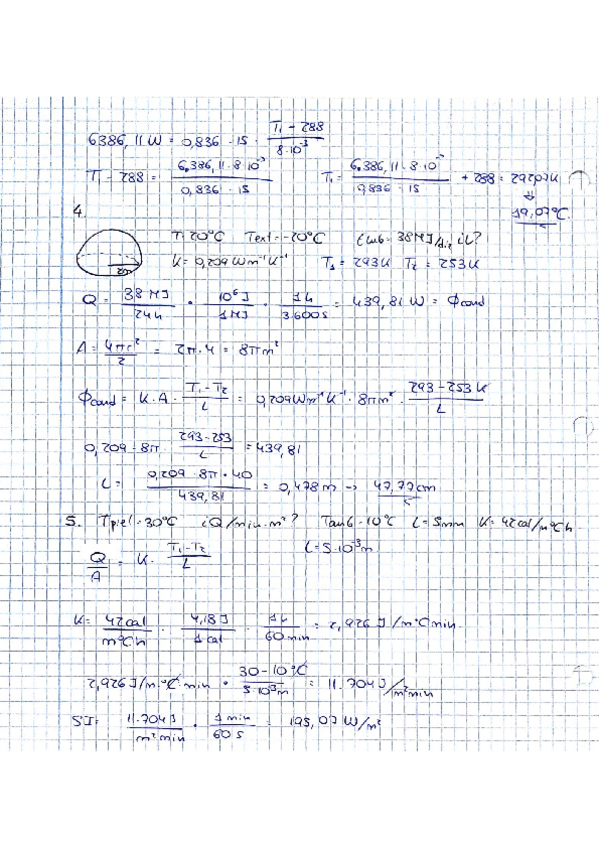 6386,11 W = 0,836 · 15 · (T₁ - 288)/(8·10⁻³)
T₁ - 288 = (6.386,11 · 8·10⁻³)/(0,836 · 15)    T₁ = (6.386,11 · 8·10⁻³)/(0,836 · 15) + 288 = 292,07K
⇓
19,07°C
4.
T: 20°C    Text = -20°C    Cmb = 38MJ/día    ¿L?
2m    K = 0,209 Wm⁻¹K⁻¹    T₁ = 293K    T₂ = 253K
Q = 38 MJ/24h · 10⁶J/1MJ · 1h/3.600s = 439,81 W = Φcond
A = 4πr²/2 = 2π·4 = 8πm²
Φcond = K·A · (T₁-T₂)/L = 0,209Wm⁻¹K⁻¹ · 8πm² · (293-253K)/L
0,209 · 8π · (293-253)/L = 439,81
L = (0,209 · 8π · 40)/439,81 = 0,478m → 47,77cm
5. Tpiel = 30°C    ¿Q/min·m²?    Tamb = 10°C    L = 5mm    K = 42cal/m°Ch
Q/A = K · (T₁-T₂)/L    L = 5·10⁻³m
K = 42cal/m°Ch · 4,18J/1cal · 1h/60min = 2,926 J/m°Cmin
2,926 J/m·°C·min · (30-10°C)/(5·10⁻³m) = 11.704J/m²min
SI = 11.704J/m²min · 1min/60s = 195,07 W/m²